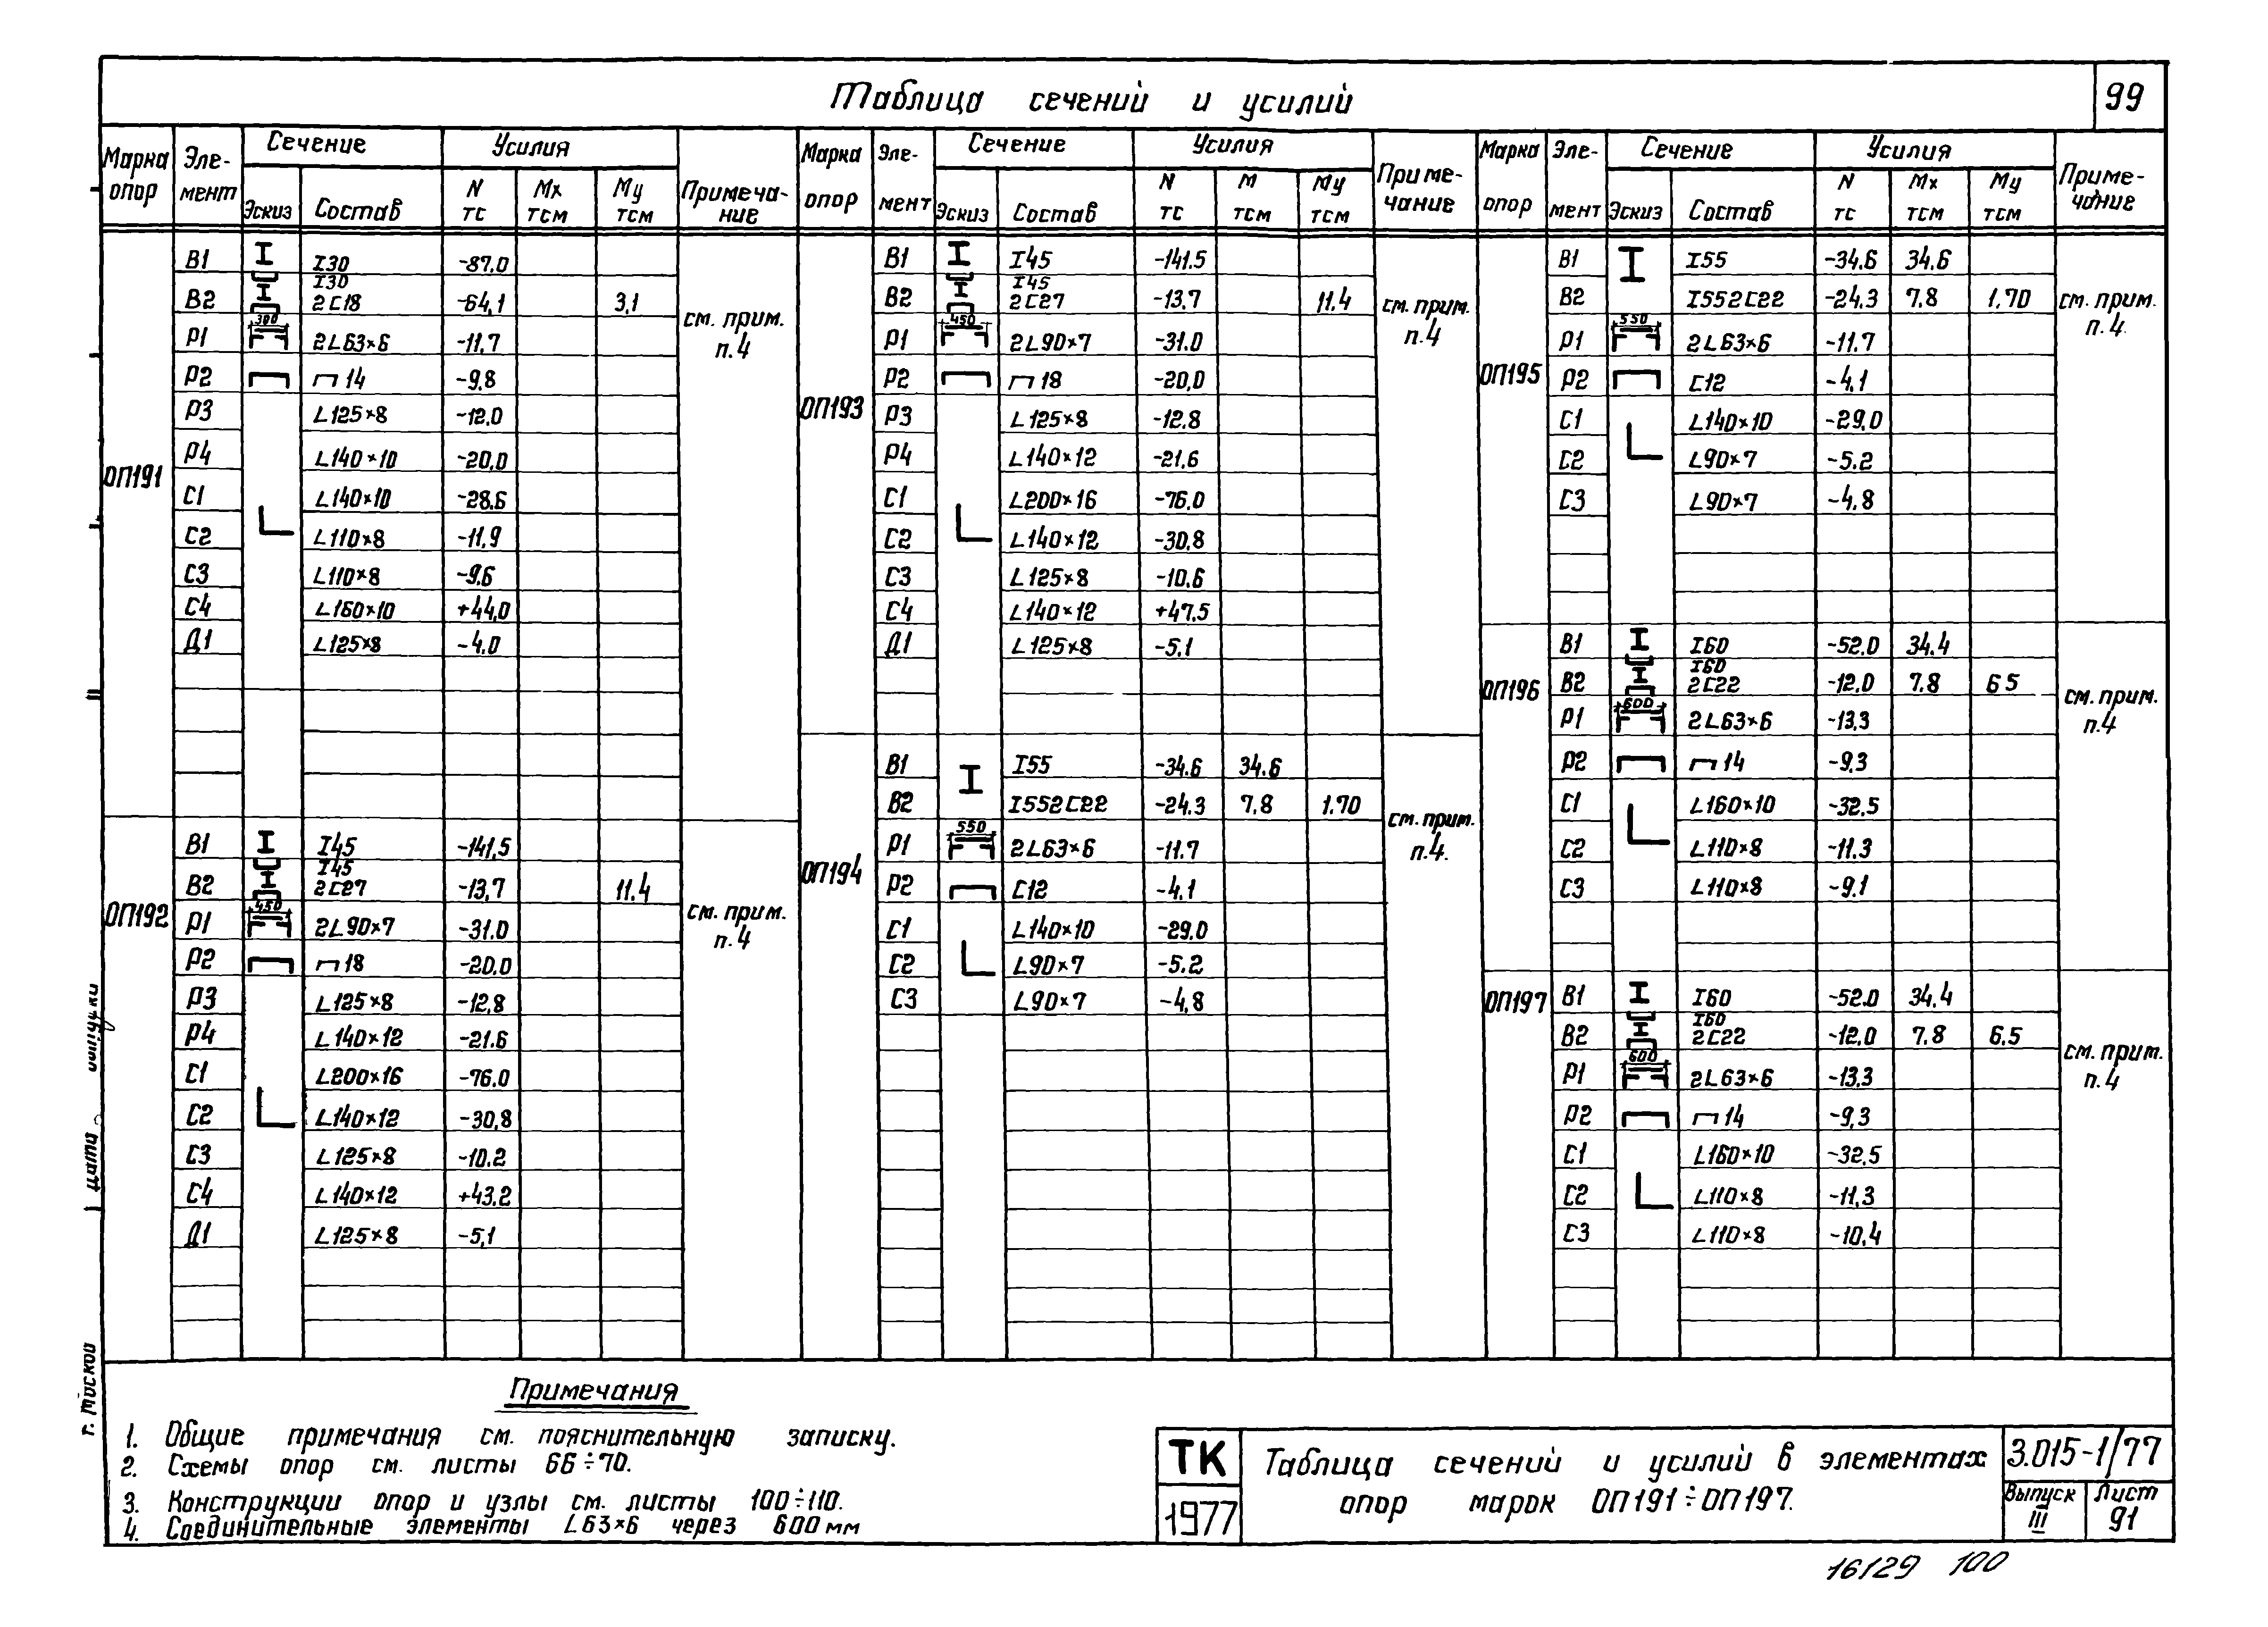 Таблица сечений и усилий
99
Марка опор Элемент Сечение Эскиз Состав Усилия N тс Mx тсм My тсм Примеча-ние
ОП191
В1 I30 -87.0
В2 I30 2С18 -64,1 3,1 см. прим. п.4
Р1 300 2L63×6 -11,7
Р2 ⊓ 14 -9,8
Р3 L125×8 -12.0
Р4 L140×10 -20,0
С1 L140×10 -28.6
С2 L110×8 -11,9
С3 L110×8 -9.6
С4 L160×10 +44,0
Д1 L125×8 -4.0
ОП192
В1 I45 -141,5
В2 I45 2С27 -13,7 11.4 см. прим. п.4
Р1 450 2L90×7 -31.0
Р2 ⊓ 18 -20.0
Р3 L125×8 -12,8
Р4 L140×12 -21.6
С1 L200×16 -76.0
С2 L140×12 -30,8
С3 L125×8 -10.2
С4 L140×12 +43,2
Д1 L125×8 -5,1
Марка опор Эле-мент Сечение Эскиз Состав Усилия N тс M тсм My тсм Приме-чание
ОП193
В1 I45 -141.5
В2 I45 2С27 -13,7 11.4 см. прим. п.4
Р1 450 2L90×7 -31.0
Р2 ⊓ 18 -20,0
Р3 L125×8 -12,8
Р4 L140×12 -21,6
С1 L200×16 -76.0
С2 L140×12 -30,8
С3 L125×8 -10.6
С4 L140×12 +47.5
Д1 L125×8 -5,1
ОП194
В1 I55 -34.6 34.6
В2 I552С22 -24.3 7,8 1.70 см. прим. п.4.
Р1 550 2L63×6 -11.7
Р2 С12 -4,1
С1 L140×10 -29.0
С2 L90×7 -5.2
С3 L90×7 -4,8
Марка опор Эле-мент Сечение Эскиз Состав Усилия N тс Mx тсм My тсм Приме-чание
ОП195
В1 I55 -34.6 34.6
В2 I552С22 -24.3 7.8 1,70 см. прим. п.4
Р1 550 2L63×6 -11.7
Р2 С12 -4,1
С1 L140×10 -29,0
С2 L90×7 -5.2
С3 L90×7 -4,8
ОП196
В1 I60 -52.0 34.4
В2 I60 2С22 -12.0 7.8 6 5 см. прим. п.4
Р1 600 2L63×6 -13,3
Р2 ⊓ 14 -9,3
С1 L160×10 -32,5
С2 L110×8 -11.3
С3 L110×8 -9.1
ОП197
В1 I60 -52.0 34,4
В2 I60 2С22 -12,0 7.8 6.5 см. прим. п.4
Р1 600 2L63×6 -13,3
Р2 ⊓ 14 -9,3
С1 L160×10 -32,5
С2 L110×8 -11,3
С3 L110×8 -10,4
Примечания
1. Общие примечания см. пояснительную записку.
2. Схемы опор см. листы 66÷70.
3. Конструкции опор и узлы см. листы 100÷110.
4. Соединительные элементы L63×6 через 600 мм
ТК
1977
Таблица сечений и усилий в элементах
опор марок ОП191÷ОП197.
3.015-1/77
Выпуск III
Лист 91
16129 100
г. Москва
дата